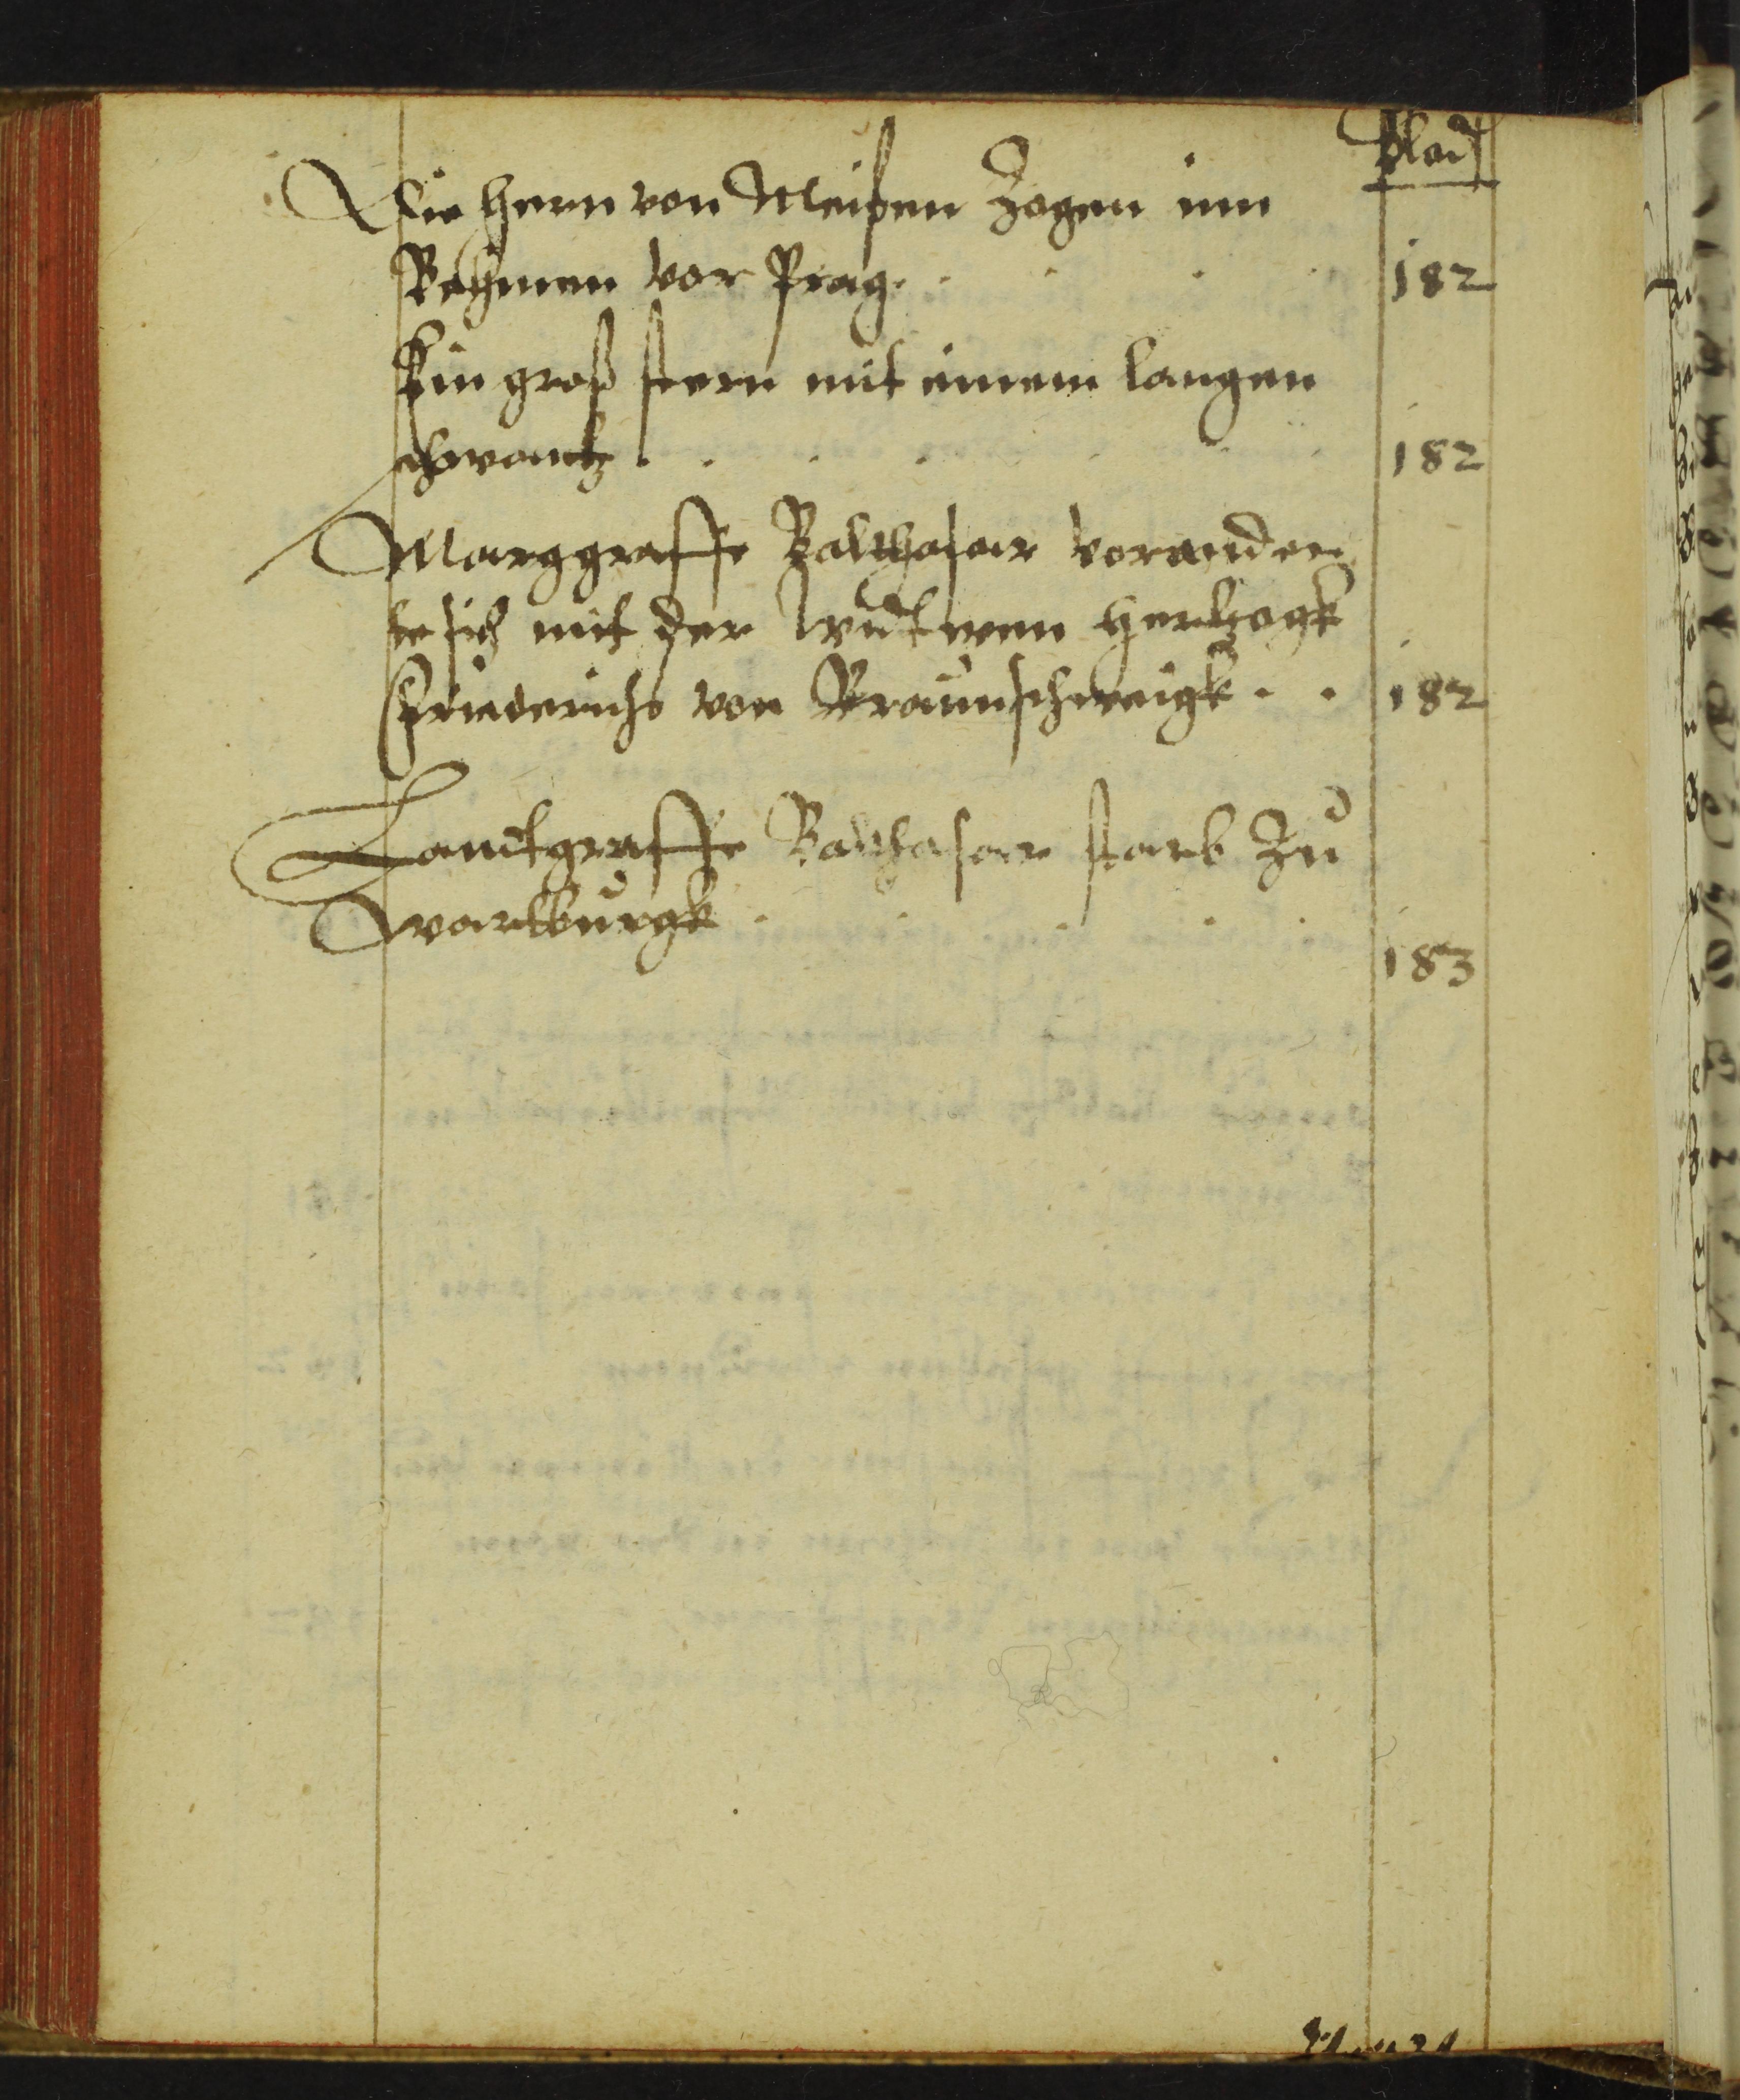 Blad
Die Hern von Meißen Zogen inn
Behmen vor Prag. . . . . 182
Ein groß stern mit einem langen
schwantz . . . . . . 182
Marggraffe Balthasar vorander
te sich mit der Widtwen Hertzogk
Friederichs von Braunschweigk . . 182
Landtgraffe Balthasar starb Zu
Wartburgk . . . . . 183